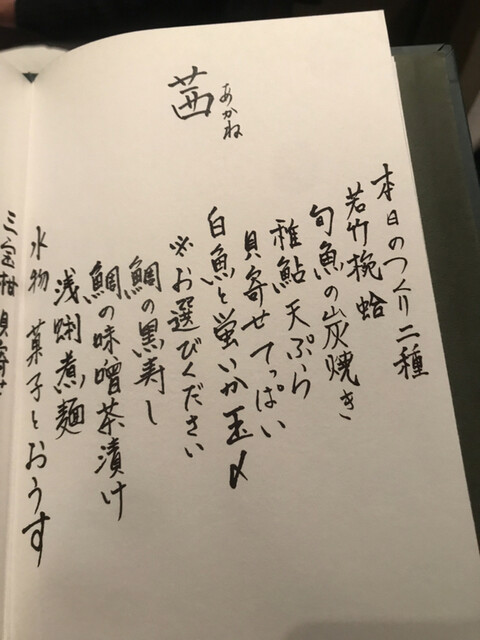 茜
あかね
本日のつくり二種
若竹椀 蛤
旬魚の炭焼き
稚鮎 天ぷら
貝寄せてっぱい
白魚と蛍いか玉〆
※お選びください
鯛の黒寿し
鯛の味噌茶漬け
浅蜊煮麺
水物 菓子とおうす
三宝柑 貝寄せ